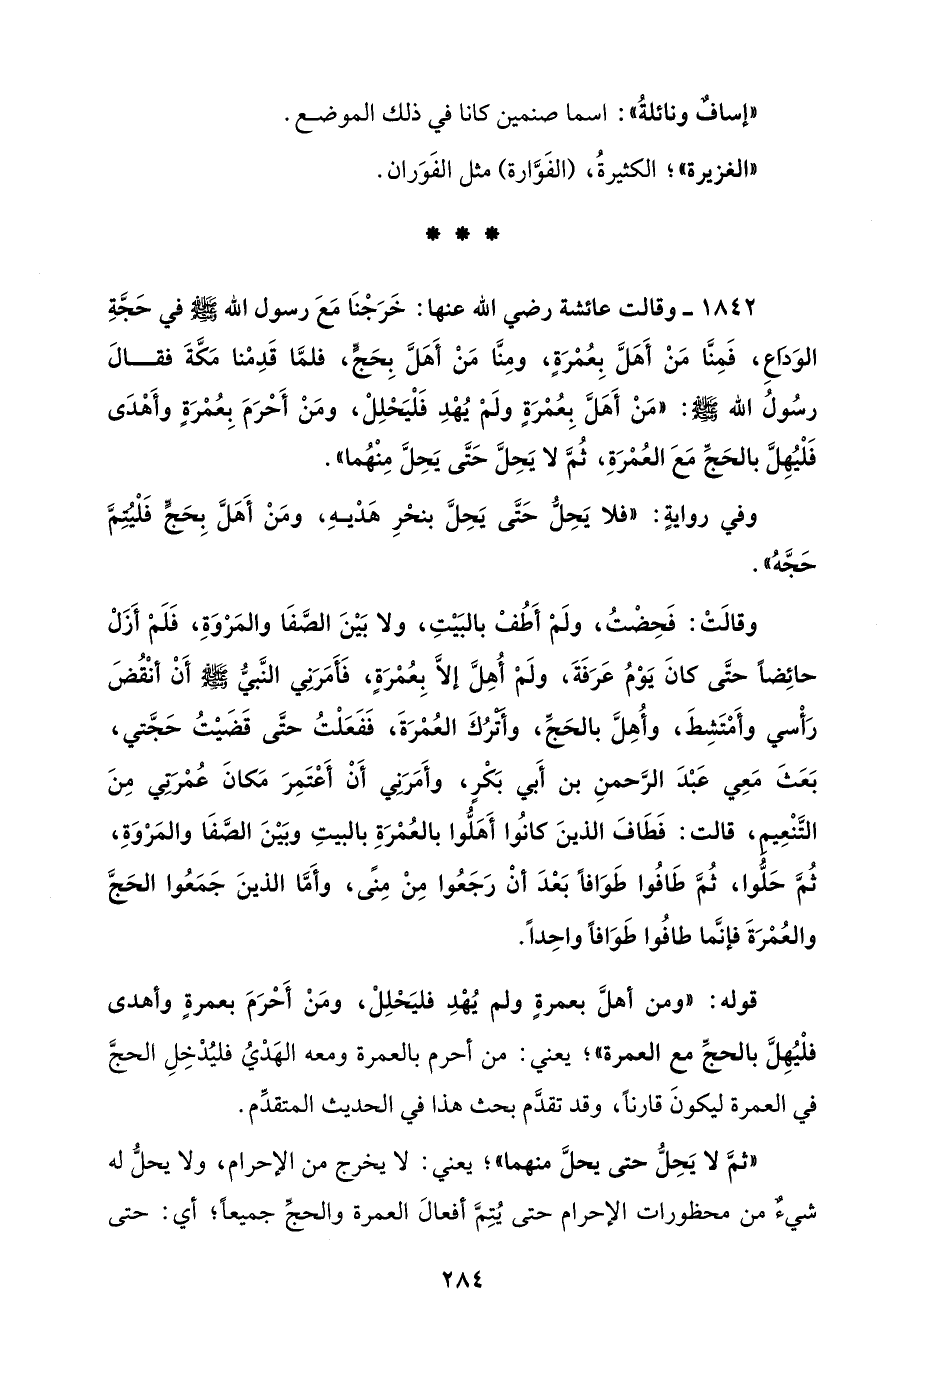 «إسافٌ ونائلةُ»: اسما صنمين كانا في ذلك الموضع.
«الغزيرة»؛ الكثيرةُ، (الفَوَّارة) مثل الفَوَران.
* * *
١٨٤٢ - وقالت عائشة رضي الله عنها: خَرَجْنَا مَعَ رسول الله ﷺ في حَجَّةِ
الوَدَاعِ، فَمِنَّا مَنْ أَهَلَّ بِعُمْرَةٍ، ومِنَّا مَنْ أَهَلَّ بِحَجٍّ، فلمَّا قَدِمْنا مَكَّةَ فقــالَ
رسُولُ الله ﷺ: «مَنْ أَهَلَّ بِعُمْرَةٍ ولَمْ يُهْدِ فَلْيَحْلِلْ، ومَنْ أَحْرَمَ بِعُمْرَةٍ وأَهْدَى
فَلْيُهِلَّ بالحَجِّ مَعَ العُمْرَةِ، ثُمَّ لا يَحِلَّ حَتَّى يَحِلَّ مِنْهُما».
وفي روايةٍ: «فلا يَحِلُّ حَتَّى يَحِلَّ بنحْرِ هَدْيـهِ، ومَنْ أَهَلَّ بِحَجٍّ فَلْيُتِمَّ
حَجَّهُ».
وقالَتْ: فَحِضْتُ، ولَمْ أَطُفْ بالبَيْتِ، ولا بَيْنَ الصَّفَا والمَرْوَةِ، فَلَمْ أَزَلْ
حائِضاً حتَّى كانَ يَوْمُ عَرَفَةَ، ولَمْ أُهِلَّ إلاَّ بِعُمْرَةٍ، فَأَمَرَنِي النَّبيُّ ﷺ أَنْ أَنْقُضَ
رَأْسي وأَمْتَشِطَ، وأُهِلَّ بالحَجِّ، وأَتْرُكَ العُمْرَةَ، فَفَعَلْتُ حتَّى قَضَيْتُ حَجَّتي،
بَعَثَ مَعِي عَبْدَ الرَّحمنِ بن أَبي بَكْرٍ، وأَمَرَنِي أَنْ أَعْتَمِرَ مَكانَ عُمْرَتِي مِنَ
التَّنْعِيمِ، قالت: فَطَافَ الذينَ كانُوا أَهَلُّوا بالعُمْرَةِ بالبيتِ وبَيْنَ الصَّفَا والمَرْوَةِ،
ثُمَّ حَلُّوا، ثُمَّ طَافُوا طَوَافاً بَعْدَ أنْ رَجَعُوا مِنْ مِنًى، وأَمَّا الذينَ جَمَعُوا الحَجَّ
والعُمْرَةَ فإنَّما طافُوا طَوَافاً واحِداً.
قوله: «ومن أهلَّ بعمرةٍ ولم يُهْدِ فليَحْلِلْ، ومَنْ أَحْرَمَ بعمرةٍ وأهدى
فلْيُهِلَّ بالحجِّ مع العمرة»؛ يعني: من أحرم بالعمرة ومعه الهَدْيُ فليُدْخِلِ الحجَّ
في العمرة ليكونَ قارناً، وقد تقدَّم بحث هذا في الحديث المتقدِّم.
«ثمَّ لا يَحِلُّ حتى يحلَّ منهما»؛ يعني: لا يخرج من الإحرام، ولا يحلُّ له
شيءٌ من محظورات الإحرام حتى يُتِمَّ أفعالَ العمرة والحجِّ جميعاً؛ أي: حتى
٢٨٤